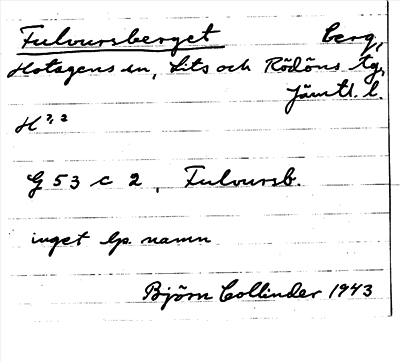 Fulvursberget berg,
Hotagens sn, Lits och Rödöns tg,
Jämtl. l.
H², ²
G 53 c 2, Fulvursb.
inget lp. namn
Björn Collinder 1943